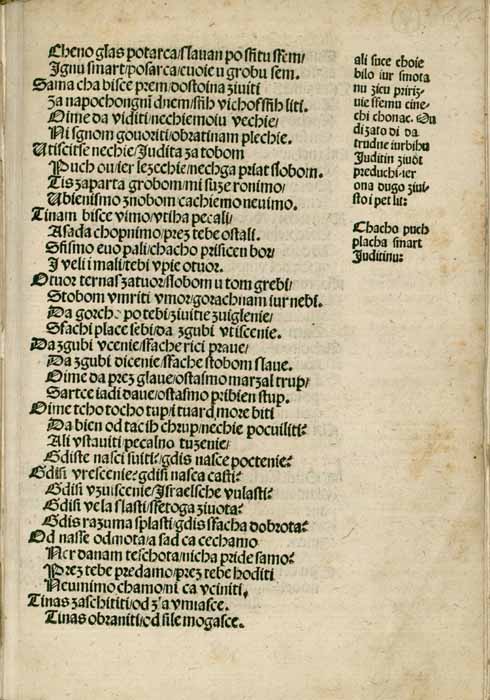 Cheno glas potarca/slavan po sfitu sfem/
Jgnu smart/posarca/cuoie u grobu sem.
Sama cha bisce prem/dostoina ziuiti
Za napochongni dnem/sfih vichof sfih liti.
Oime da viditi/nechiemoiu vechie/
Ni sgnom gouoriti/obratinam plechie.
Utiscitse nechie/Judita za tobom
Puch ou/ier lezechie/nechga priat slobom.
Tis zaparta grobom/mi suze ronimo/
Ubienismo znobom/cachiemo neuimo.
Tinam bisce vimo/vtiha pecali/
Asada chopnimo/prez tebe ostali.
Sfismo euo pali/chacho prisicen bor/
J veli i mali/tebi vpie otuor.
Otuor ternas zatuor/slobom u tom grebi/
Stobom vmriti vmor/gorachnam iur nebi.
Da gorche po tebi/ziuitie zuiglenie/
Sfachi place sebi/da zgubi vtiscenie.
Da zgubi vcenie/sfache rici praue/
Da zgubi dicenie/sfache stobom slaue.
Oime da prez glaue/ostasmo marzal trup/
Sartce iadi daue/ostasmo pribien stup.
Oime tcho tocho tup/i tuard more biti
Da bien od tacih chrup/nechie pocuiliti?
Ali vstauiti pecalno tuzenie/
Gdiste nasci suiti? gdis nasce poctenie?
Gdisi vrescenie? gdisi nasca casti?
Gdisi vzuiscenie/Jsraelsche vulasti?
Gdisi vela slasti/sfetoga ziuota?
Gdis razuma splasti/gdis sfacha dobrota?
Od nasse odmota/a sad ca cechamo
Ner danam teschota/nicha pride samo?
Prez tebe predamo/prez tebe hoditi
Neumimo chamo/ni ca vciniti.
Tinas zaschititi/od z'a vmiasce.
Tinas obraniti/od sile mogasce.
ali suce choie
bilo iur smota
nu zieu pririz-
uie sfemu cine-
chi chonac. Ou
di zato di da
trudne iurbihu
Juditin ziuot
preduchi/ier
ona dugo ziui-
sto i pet lit:
Chacho puch
placha smart
Juditinu: